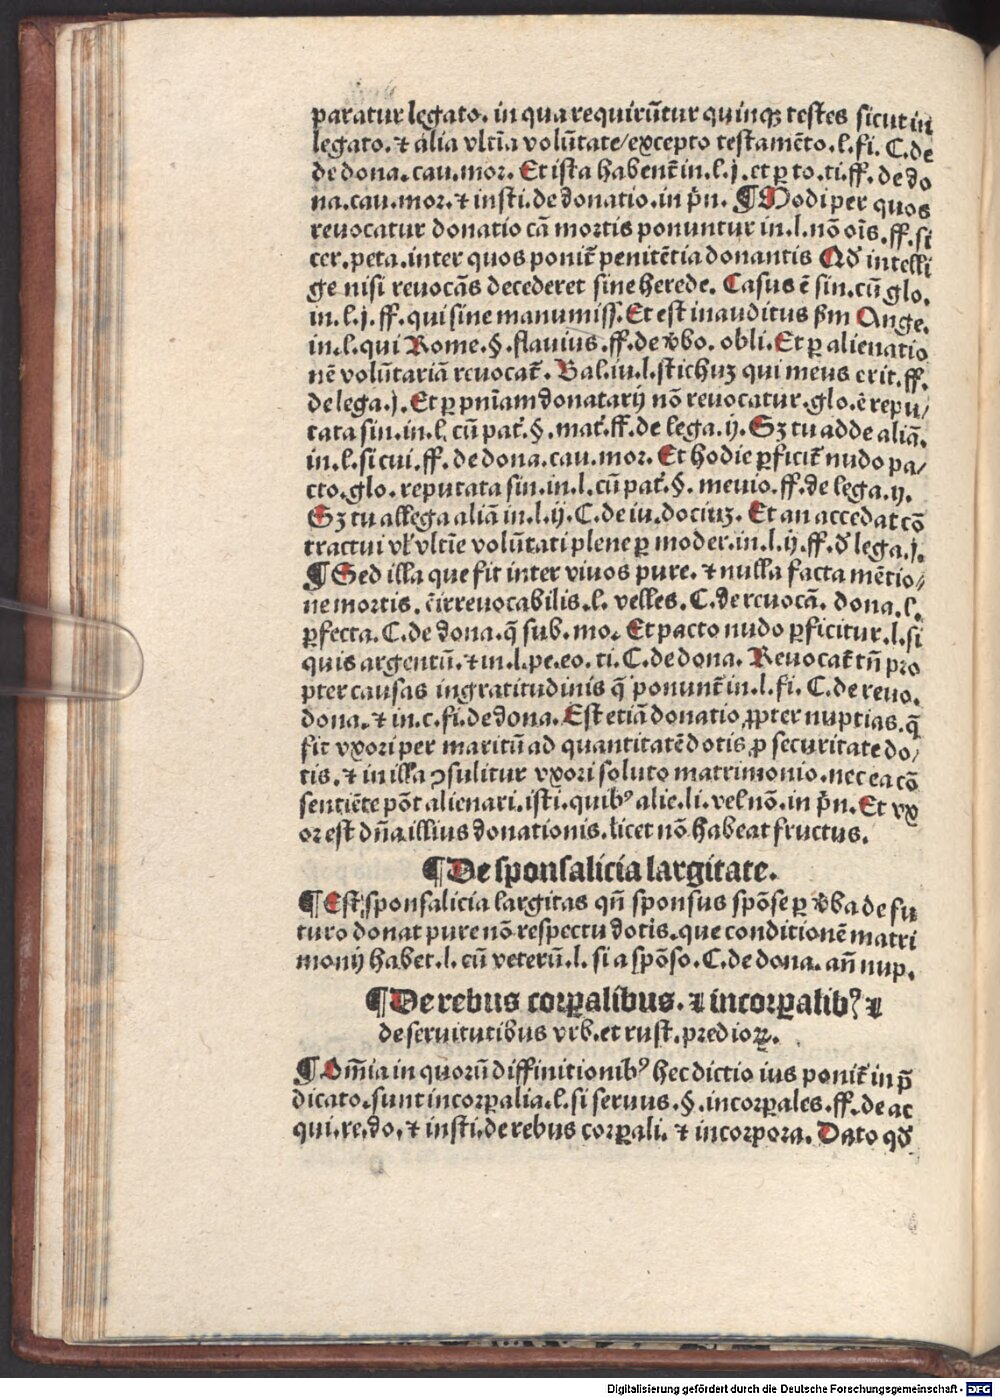 paratur legato. in qua requirũtur quinqꝫ testes sicut in
legato. ⁊ alia vltĩa volũtate/excepto testamẽto. l. fi. C. de
de dona. cau. mor. Et ista habent̃ in. l. j. et ꝑ to. ti. ff. de do
na. cau. mor. ⁊ insti. de donatio. in pñ. ¶ Modi per quos
reuocatur donatio cã mortis ponuntur in. l. nõ oĩs. ff. si
cer. peta. inter quos ponit̃ penitẽtia donantis Qđ intelli
ge nisi reuocãs decederet sine herede. Casus ẽ sin. cũ glo.
in. l. j. ff. qui sine manumiss. Et est inauditus ẞm Ange.
in. l. qui Rome. §. flauius. ff. de v̓bo. obli. Et ꝑ alienatio
nẽ volũtariã reuocat̃. Bal. in. l. stichuꝫ qui meus erit. ff.
de lega. j. Et ꝑ pñiam donatarij nõ reuocatur. glo. ẽ repu/
tata sin. in. l. cũ pat̃. §. mat̃. ff. de lega. ij. Sꝫ tu adde aliã.
in. l. si cui. ff. de dona. cau. mor. Et hodie ꝑficit̃ nudo pa/
cto. glo. reputata sin. in. l. cũ pat̃. §. meuio. ff. de lega. ij.
Sꝫ tu allega aliã in. l. ij. C. de iu. dociuꝫ. Et an accedat cõ
tractui vl̓ vltĩe volũtati plene ꝑ moder. in. l. ij. ff. đ lega. j.
¶ Sed illa que fit inter viuos pure. ⁊ nulla facta mẽtio/
ne mortis. ẽ irreuocabilis. l. velles. C. de reuocã. dona. l.
ꝑfecta. C. de dona. q̃ sub. mo. Et pacto nudo ꝑficitur. l. si
quis argentũ. ⁊ in. l. pe. eo. ti. C. de dona. Reuocat̃ tñ pro
pter causas ingratitudinis q̃ ponunt̃ in. l. fi. C. de reuo.
dona. ⁊ in. c. fi. de dona. Est etiã donatio ꝓpter nuptias. q̃
fit vxori per maritũ ad quantitatẽ dotis ꝓ securitate do/
tis. ⁊ in illa ꝯsulitur vxori soluto matrimonio. nec ea cõ
sentiẽte põt alienari. isti. quibꝰ alie. li. vel nõ. in pñ. Et vx
or est dña illius donationis. licet nõ habeat fructus.
¶ De sponsalicia largitate.
¶ Est sponsalicia largitas qñ sponsus spõse ꝑ v̓ba de fu
turo donat pure nõ respectu dotis. que conditionẽ matri
monij habet. l. cũ veterũ. l. si a spõso. C. de dona. añ nup.
¶ De rebus corꝑalibus. ⁊ incorꝑalibꝰ ⁊
de seruitutibus vrb. et rust. predioꝝ.
¶ Om̃ia in quorũ diffinitionibꝰ hec dictio ius ponit̃ in p̃
dicato. sunt incorꝑalia. l. si seruus. §. incorꝑales. ff. de ac
qui. re. do. ⁊ insti. de rebus corꝑali. ⁊ incorpora. Dato qđ
Digitalisierung gefördert durch die Deutsche Forschungsgemeinschaft - DFG